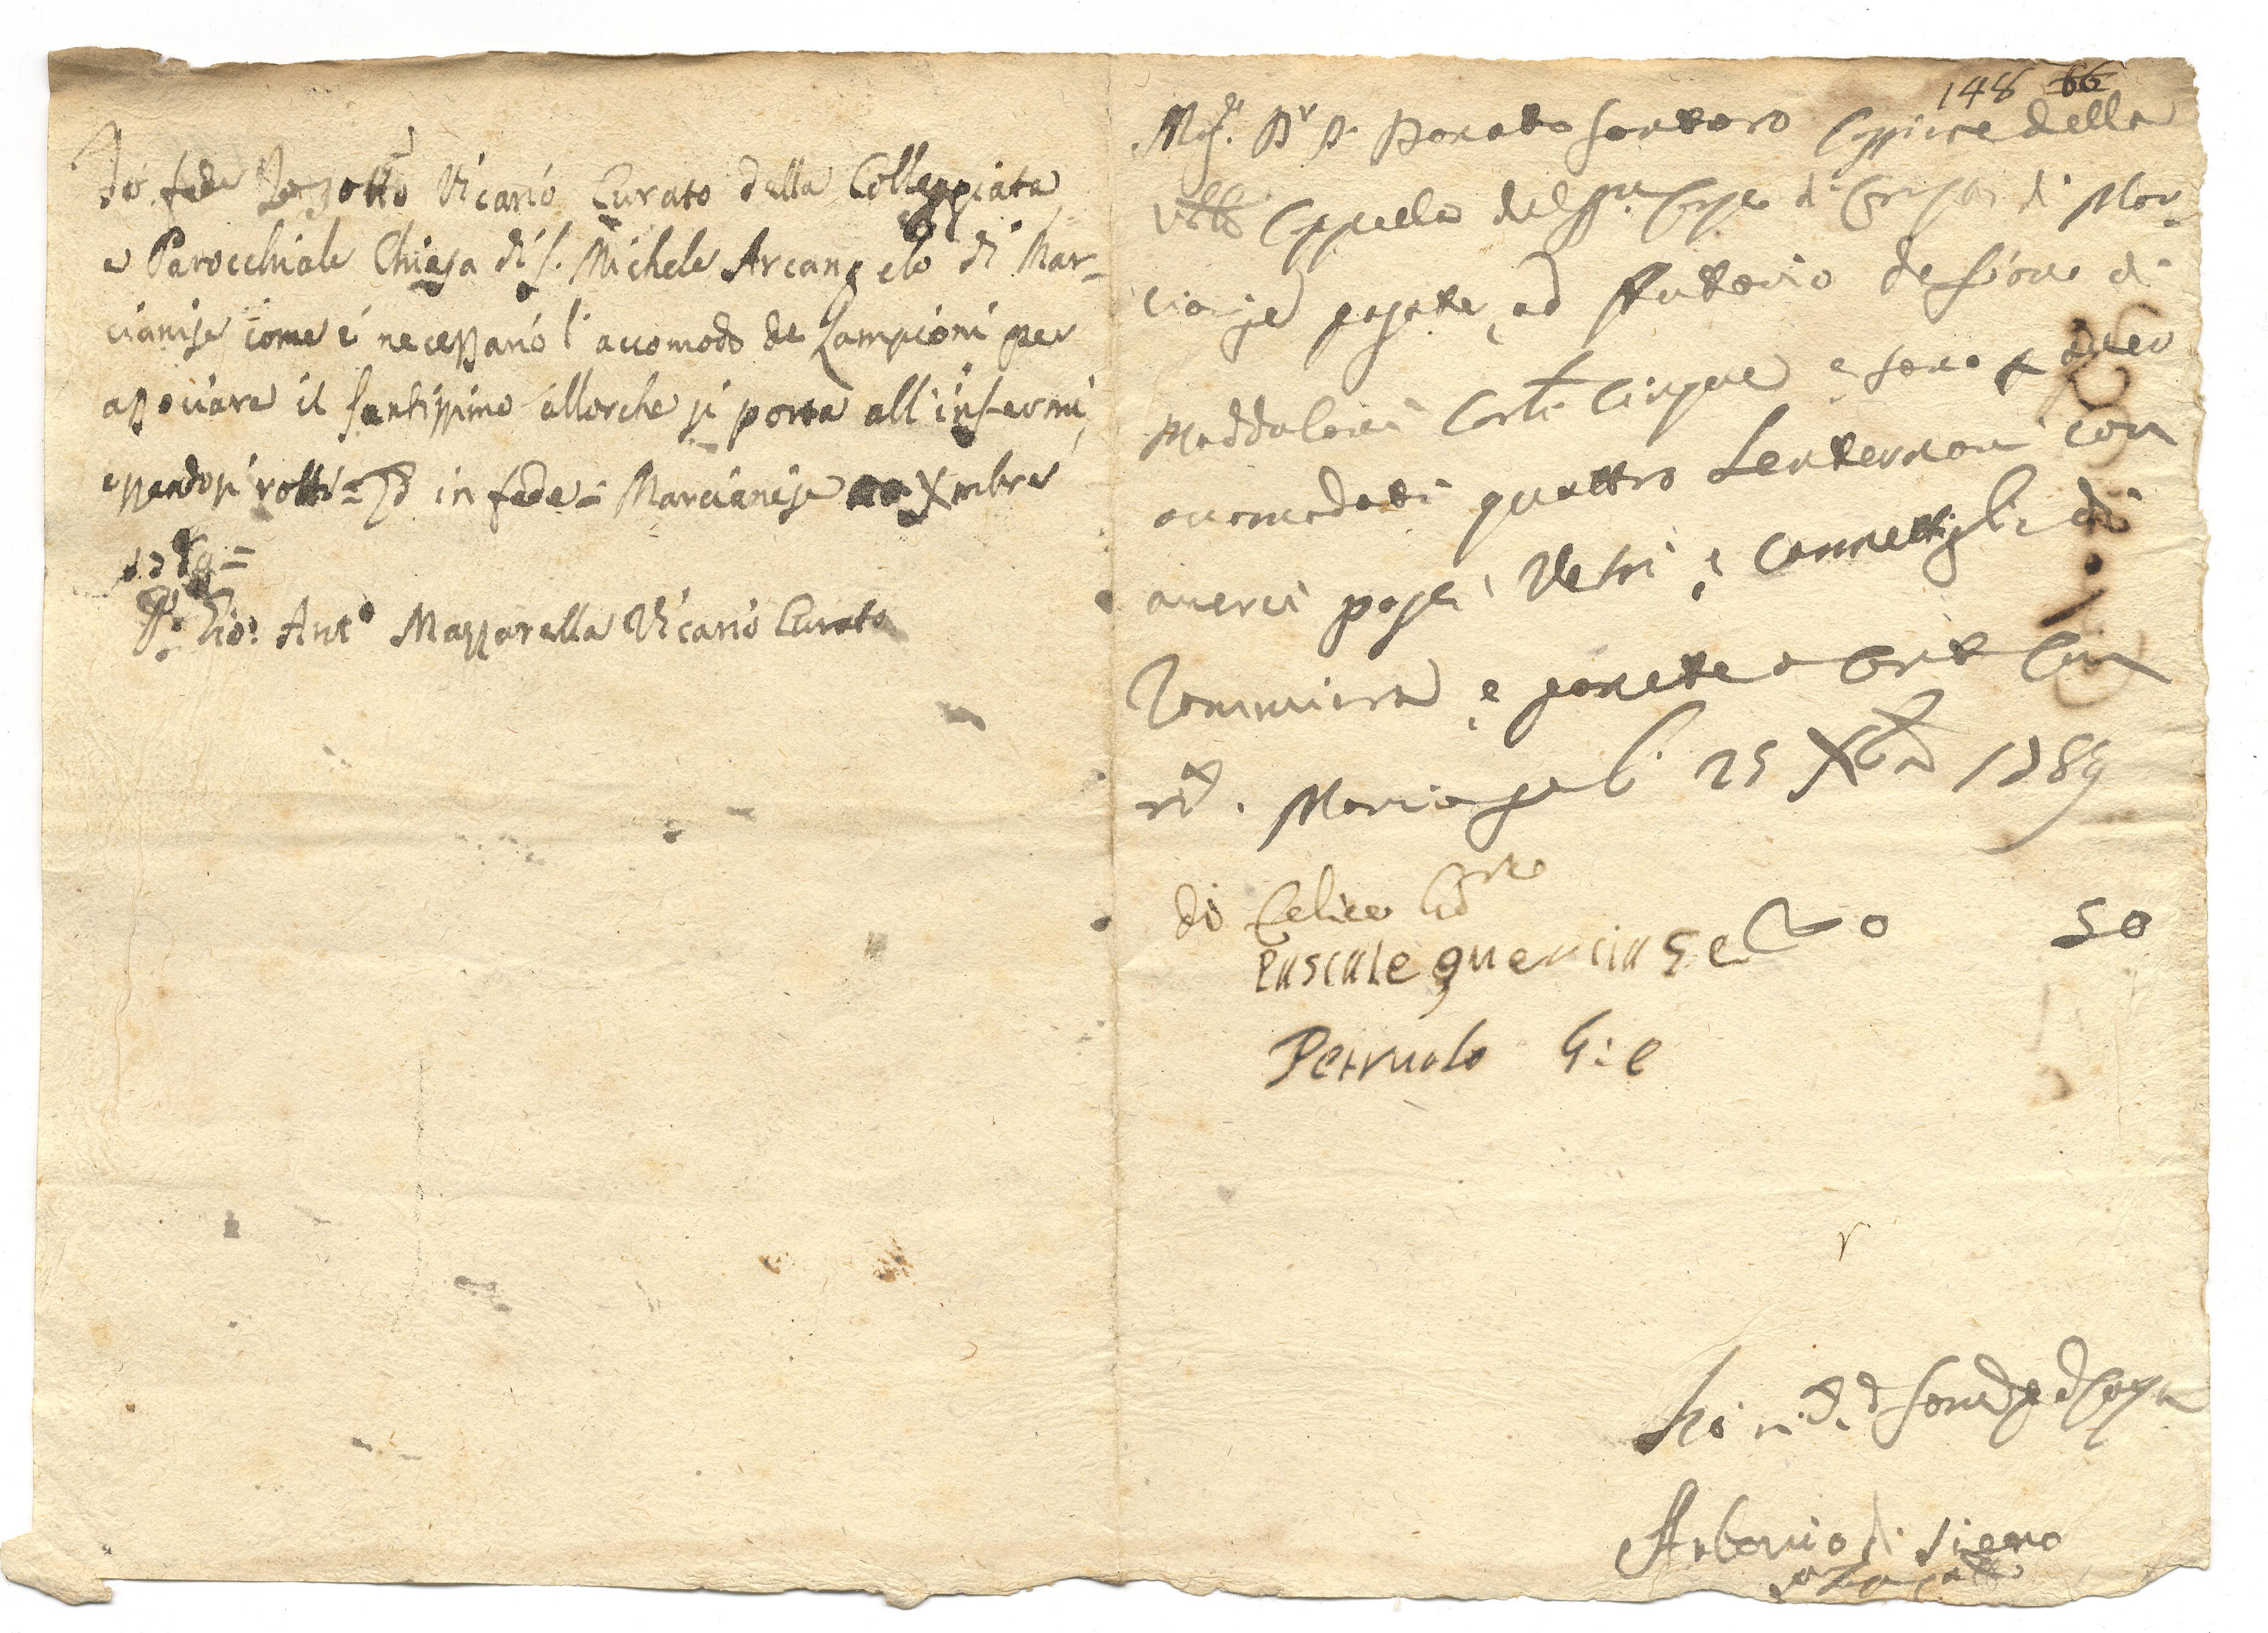 Io fede Io sotto Vicario Curato della Colleggiata
e Parocchiale Chiesa di S. Michele Arcangelo di Mar-
cianise come è necessario l'accomodo de Lampioni per
associare il Santissimo allorche si porta all'infermi,
essendosi rotti = Ed in fede = Marcianise Xmbre
1789 =
Gio: Ant.o Mazzarella Vicario Curato
148 66
Mag.co D.r D. Donato Santoro Cassiere della
Cappella del SS.mo Corpo di Cristo di Mar-
cianise pagate ad Antonio de Sione di
Maddaloni Carl. Cinque e sono p aver
accomodati quattro Lanternoni con
averci posti Vetri, e Cannettiglie di
e ponete a
Marcianise li 25 Xbre 1789
di Felice
Pascale quercia Ec 0 50
Petruolo G: E
Antonio di Sieno